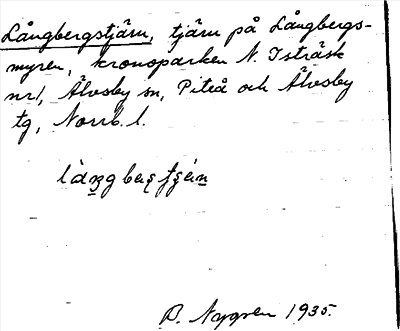 Långbergstjärn, tjärn på Långbergs-
myren, kronoparken N. Isträsk
nr 1, Älvsby sn, Piteå och Älvsby
tg, Norrb. l.
B. Nygren 1935.